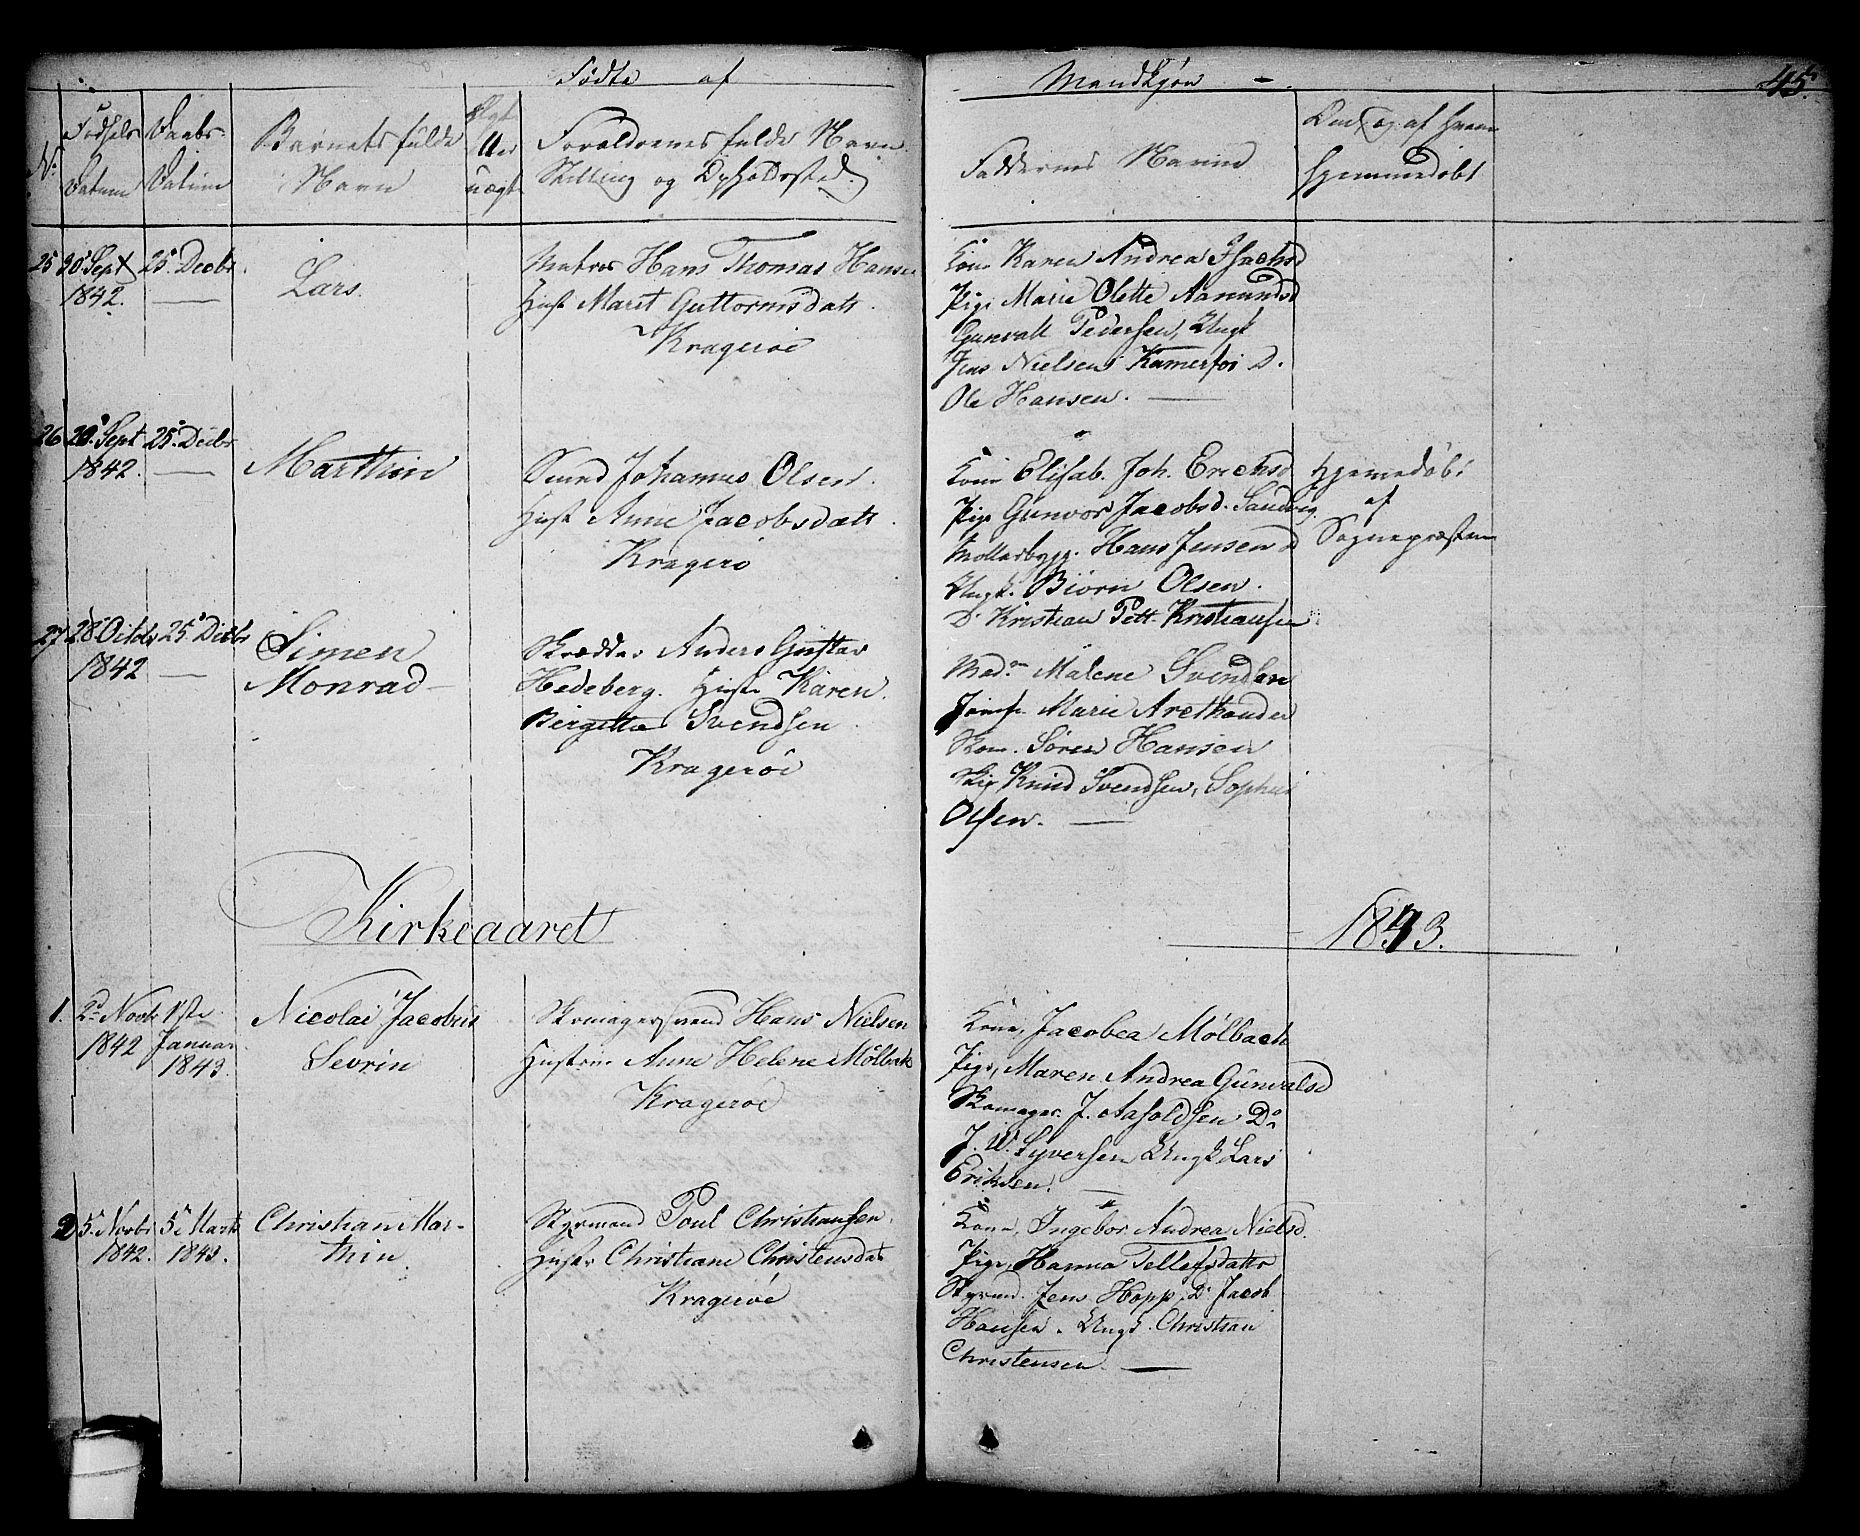 Fødte af Mandkjøn 45.
No. Fødsels Datum Daabs- Datum Barnets fulde Navn Ægte eller uægte Forældrenes fulde Navn Stilling og Opholdssted. Faddernes Navne Om, og af hvem hjemmedøbt
25 20 Sept 1842. 25 Decbr. —
Lars.
Matros Hans Thomas Hansen
Hust Marit Guttormsdatt.
Kragerøe
Kone Karen Andrea Isachsd
Pige Marie Olette Aamundsd
Gunvall Pedersen, Ungk
Jens Nielsen Kamerfos D.
Ole Hansen. —
26 20. Sept 1842. 25. Decbr —
Marthin
Smed Johannes Olsen.
Hust Anne Jacobsdatt.
Kragerø
Kone Elisab. Joh. Erichsd
Pige Gunvor Jacobsd. Sandvig.
Møllerbygg. Hans Jensen
Ungk. Biørn Olsen.
D. Kristian Pett. Kristiansen
Hjemedøbt
af
Sognepræsten
27 28 Octobr 1842 25. Decbr —
Simen
Monrad
Skrædder Anders Gustav
Hedeberg. Hustr Karen
Birgitte Svendsen
Kragerøe
Mad. Malene Svendsen
Jomfr Marie Arethander
Skom. Søren Hansen
Knud Svendsen, Sophus
Olsen. —
Kirkeaaret 1843.
1. 2d Novbr 1842 1ste Januar 1843.
Nicolai Jacobus
Sevrin
Skomagersvend Hans Nielsen
Hustrue Anne Helene Mølbak
Kragerøe
Kone, Jacobea Mølbach
Pige, Maren Andrea Gunvalsd
Skomager. J. Aasoldsen, Do
J. W. Syversen Ungk Lars
Eriksen. —
2 5. Novbr 1842. 5 Marts 1843.
Christian Mar-
thin.
Styrmand Poul Christiansen.
Hustr Christiane Christensdat
Kragerøe
Kone, Ingebor Andrea Nielsd.
Pige, Hanna Tellefsdatter
Styrmd. Jens Hopp, D. Jacob
Hansen. Ungk. Christian
Christensen. —